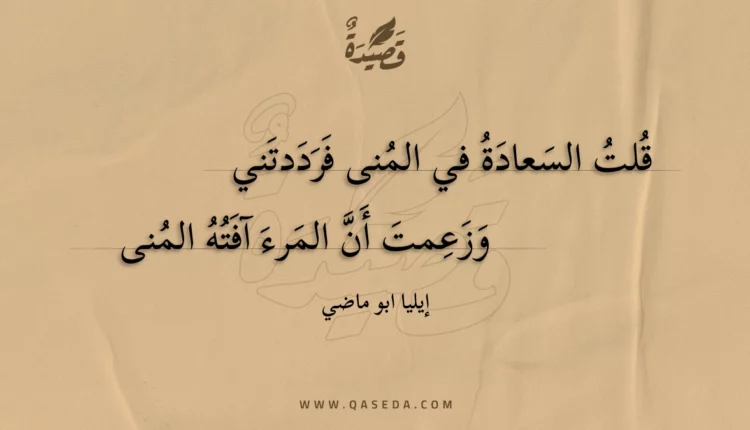 قَصِيدَةٌ
قُلتُ السَعادَةُ في المُنى فَرَدَدتَني
وَزَعِمتَ أَنَّ المَرءَ آفَتُهُ المُنى
إيليا ابو ماضي
WWW.QASEDA.COM